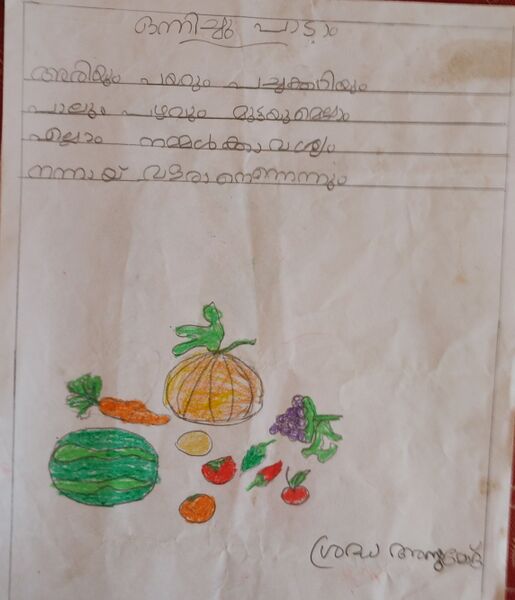 ഒന്നിച്ചു പാടാം
അരിയും പയറും പച്ചക്കറിയും
പാലും പഴവും മുട്ടയുമെല്ലാം
എല്ലാം നമ്മൾക്കാവശ്യം
നന്നായ് വളരാനെന്നെന്നും
ശ്രദ്ധ